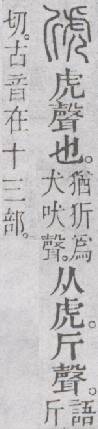 䖐虎聲也。猶㹞爲犬吠聲。从虎。斤聲。語斤
切。古音在十三部。